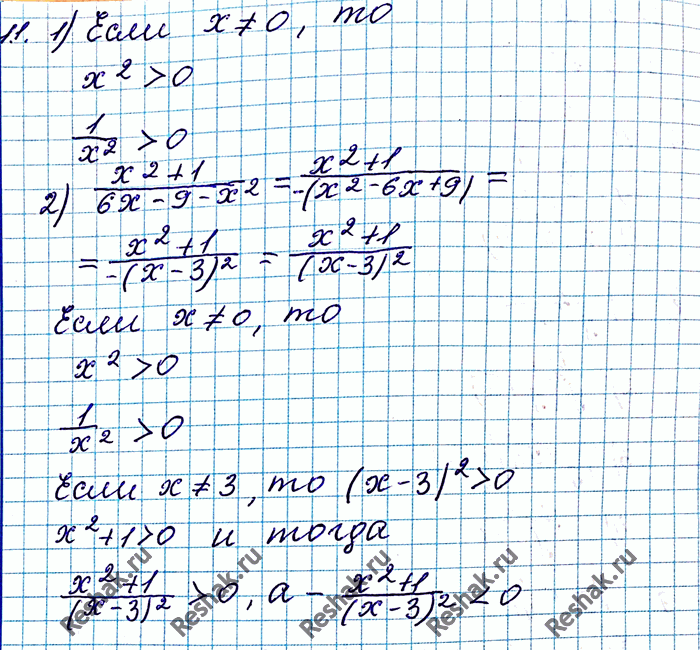 11. 1) Если x ≠ 0, то
x² > 0
1/x² > 0
2) (x²+1)/(6x-9-x²) = (x²+1)/(-(x²-6x+9)) =
= (x²+1)/(-(x-3)²) = (x²+1)/((x-3)²)
Если x ≠ 0, то
x² > 0
1/x² > 0
Если x ≠ 3, то (x-3)² > 0
x²+1 > 0 и тогда
(x²+1)/((x-3)²) > 0, а - (x²+1)/((x-3)²) < 0
Reshak.ru Reshak.ru Reshak.ru Reshak.ru Reshak.ru